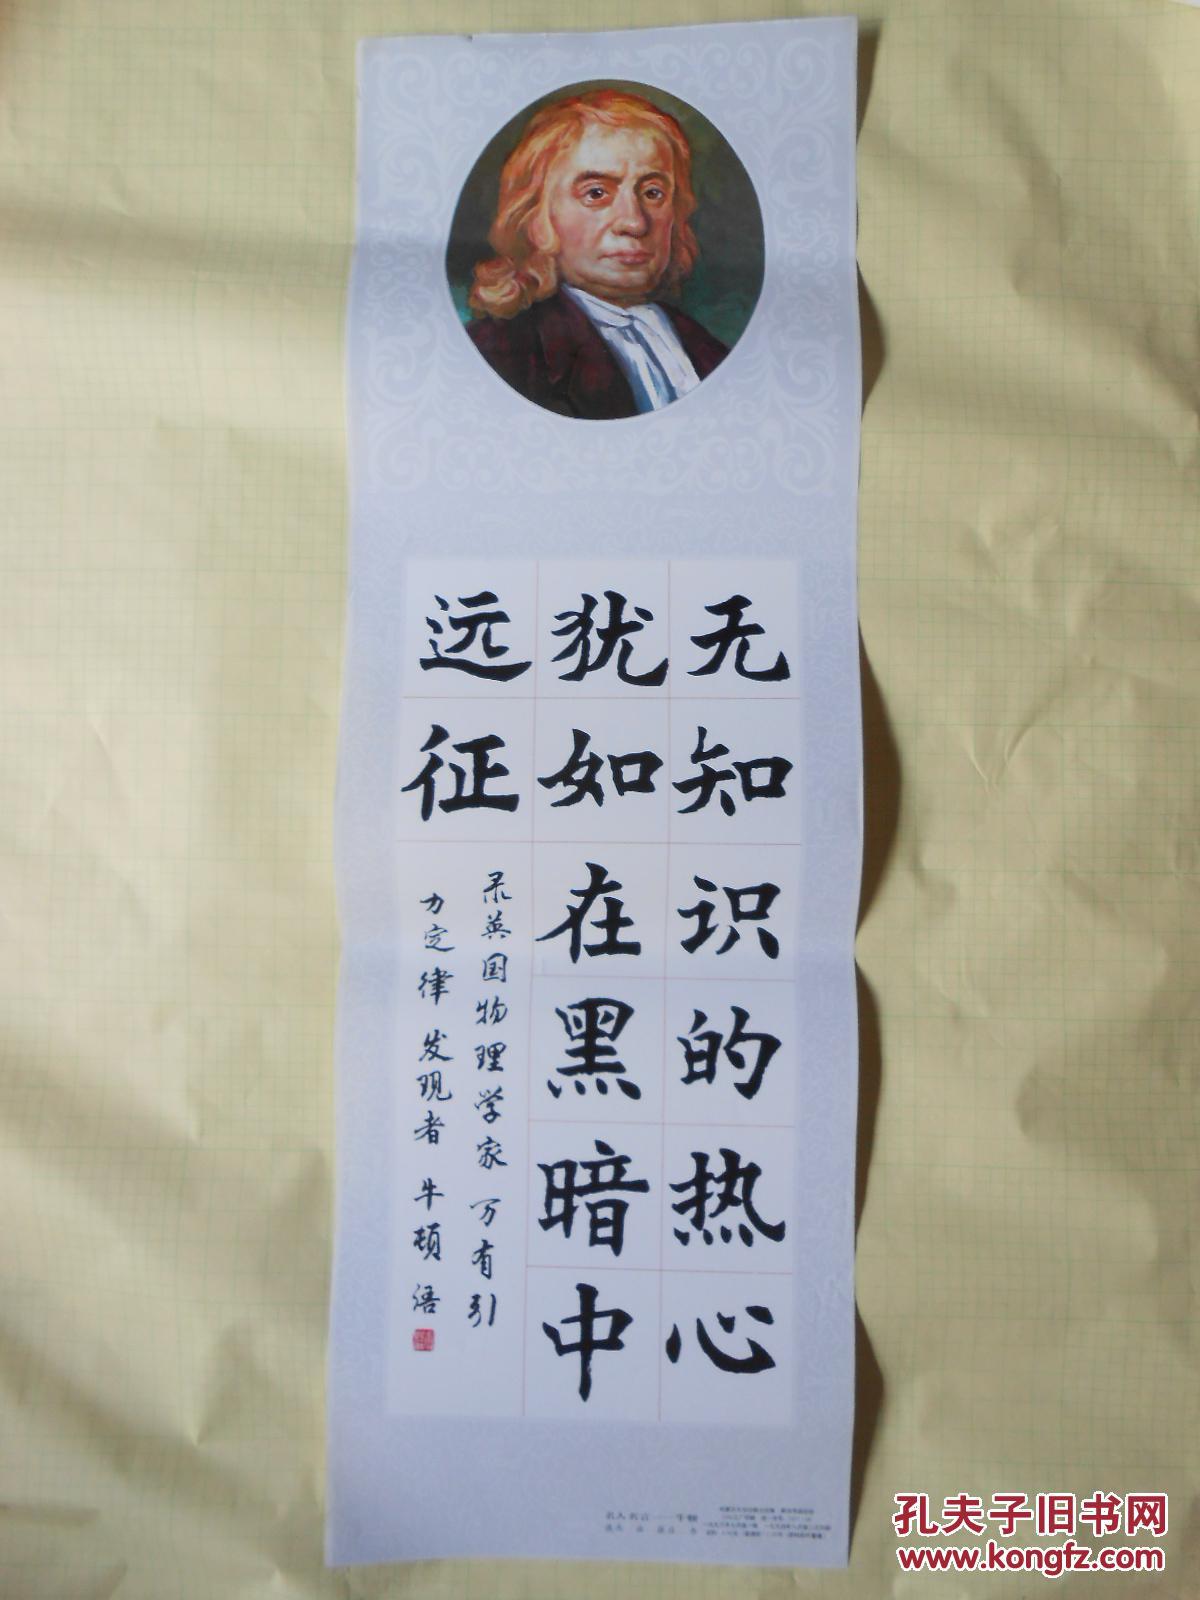 无知识的热心
犹如在黑暗中
远征
录英国物理学家 万有引
力定律 发现者 牛顿 语
名人名言——牛顿
孔夫子旧书网
www.kongfz.com